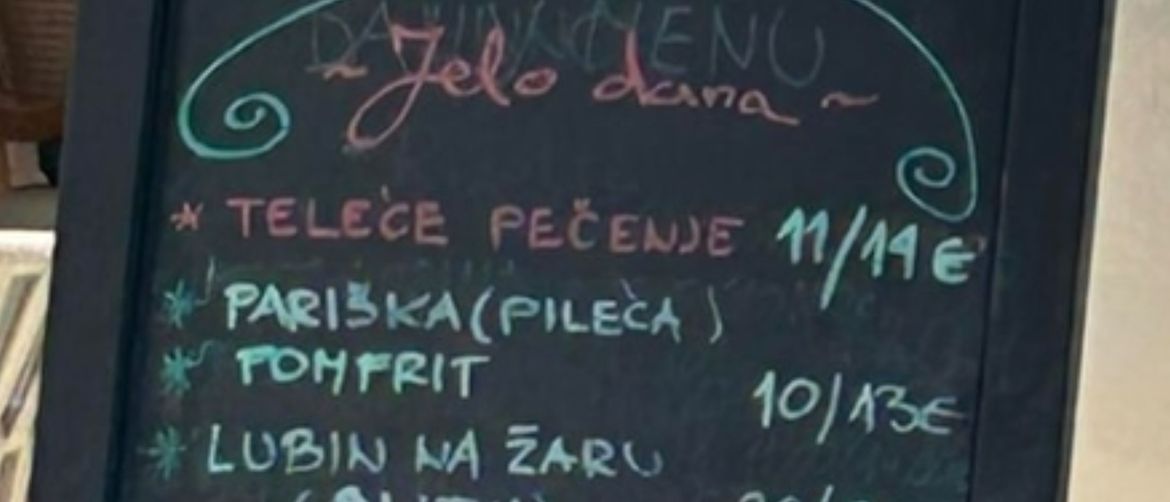 ~ Jelo dana ~
* TELEĆE PEČENJE 11/14 €
* PARIŠKA (PILEĆA)
* POMFRIT
10/13€
* LUBIN NA ŽARU